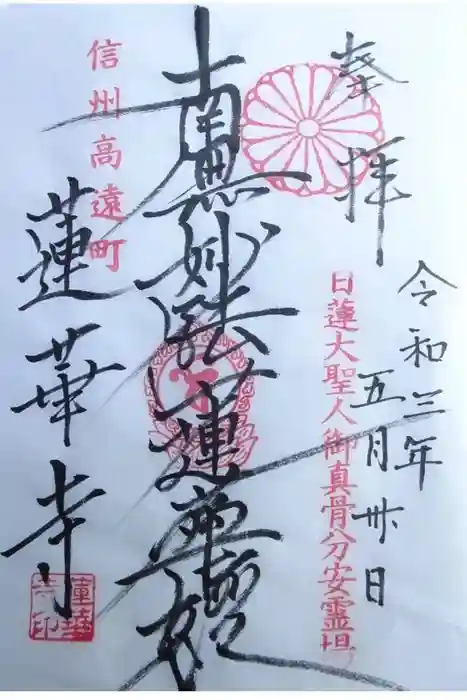 奉拝
令和三年
五月卅日
日蓮大聖人御真骨分安霊場
南無妙法蓮華経
信州高遠町
蓮華寺
蓮華寺印